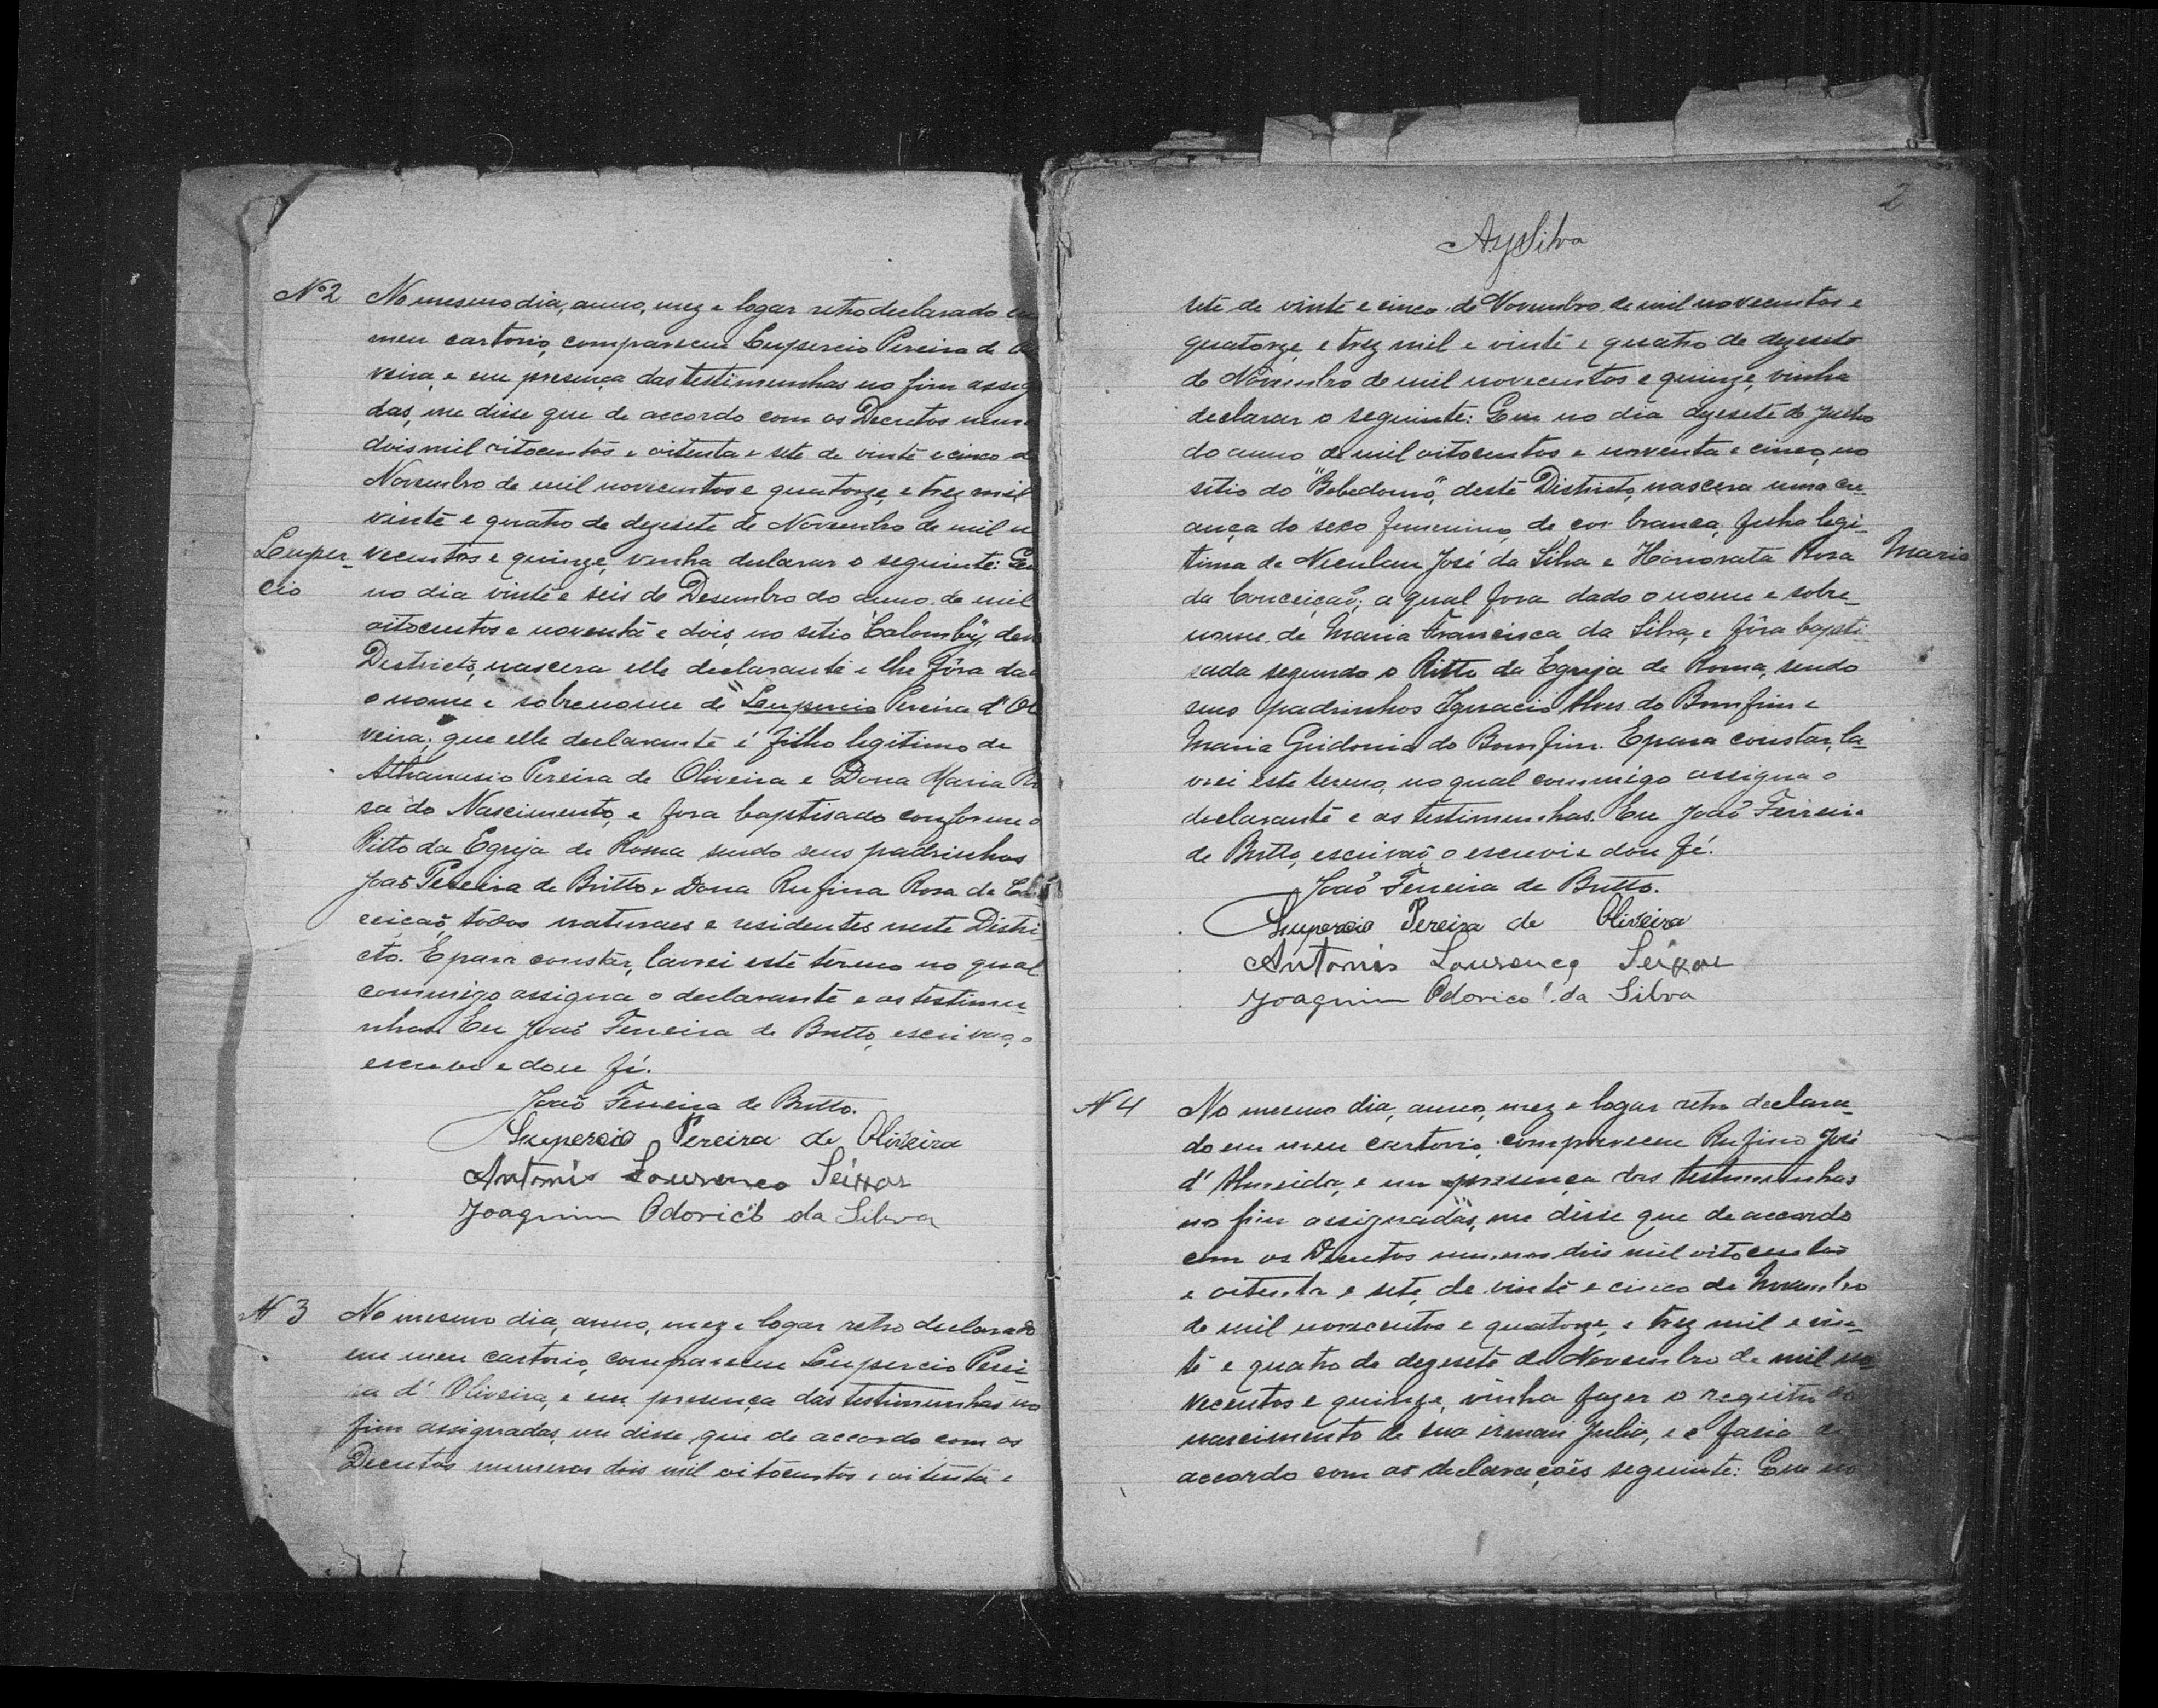 Nº 2 No mesmo dia, anno, mez e logar retro declarado em
meu cartorio, compareceu Lupercio Pereira de
veira, e em presença das testimunhas no fim assig
das, me disse que de accordo com os Decretos num
dois mil oitocentos e oitenta e sete de vinte e cinco de
Novembro de mil novecentos e quatorze, e trez mil
vinte e quatro de dezesete de Novembro de mil n
Luper- vecentos e quinze, vinha declarar o seguinte: Que
cio no dia vinte e seis de Desembro do anno de mil
oitocentos e noventa e dois, no sitio "Calomby", des
Districto, nascera elle declarante e lhe fôra dad
o nome e sobrenome de "Lupercio Pereira d'Ol
veira; que elle declarante é filho legitimo de
Athanasio Pereira de Oliveira e Dona Maria Ro
sa do Nascimento, e fora baptisado conforme o
Ritto da Egreja de Roma sendo seus padrinhos
João Pereira de Britto e Dona Rufina Rosa da Con
ceição, todos naturaes e residentes neste Distri-
cto. E para constar, lavrei este termo no qual
commigo assigna o declarante e as testimu-
nhas. Eu João Ferreira de Britto, escrivão, o
escrevi e dou fé.
João Ferreira de Britto.
Lupercio Pereira de Oliveira
Antonio Lourenço Seixas
Joaquim Odorico da Silva
Nº 3 No mesmo dia, anno, mez e logar retro declarado
em meu cartorio, compareceu Lupercio Perei-
ra d'Oliveira, e em presença das testimunhas no
fim assignadas, me disse que de accordo com os
Decretos numeros dois mil oitocentos e oitenta e
2
AySilva
sete de vinte e cinco de Novembro de mil novecentos e
quatorze, e trez mil e vinte e quatro de dezesete
de Novembro de mil novecentos e quinze, vinha
declarar o seguinte: Que no dia dezesete de Julho
do anno de mil oitocentos e noventa e cinco, no
sitio do "Bebedouro", deste Districto, nascera uma cre-
ança do sexo femenino, de cor branca, filha legi-
tima de José da Silva e Honorata Rosa Maria
da Conceição; a qual fora dado o nome e sobre-
nome de Maria Francisca da Silva, e fôra bapti-
sada segundo o Ritto da Egreja de Roma, sendo
seus padrinhos Ignacio Alves do Bomfim e
Maria do Bomfim. E para constar, la-
vrei este termo, no qual commigo assigna o
declarante e as testimunhas. Eu João Ferreira
de Britto, escrivão, o escrevi e dou fé.
João Ferreira de Britto.
Lupercio Pereira de Oliveira
Antonio Lourenço Seixas
Joaquim Odorico da Silva
Nº 4 No mesmo dia, anno, mez e logar retro declara-
do em meu cartorio, compareceu Rufino José
d'Almeida, e em presença das testimunhas
no fim assignadas, me disse que de accordo
com os Decretos numeros dois mil oitocentos
e oitenta e sete, de vinte e cinco de Novembro
de mil novecentos e quatorze, e trez mil e vin-
te e quatro de dezesete de Novembro de mil no
vecentos e quinze, vinha fazer o registro do
nascimento de sua irman Julia, e o fasia de
accordo com as declarações seguinte: Que no